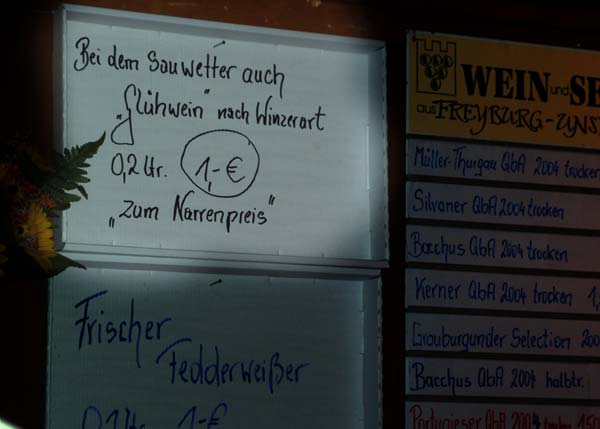 Bei dem Sauwetter auch
„Glühwein" nach Winzerart
0,2 Ltr. 1,-€
„zum Narrenpreis"
Frischer
Fedderweißer
0,2 Ltr. 1-€
WEIN und SE
aus FREYBURG-UNS
Müller-Thurgau QbA 2004 trocken
Silvaner QbA 2004 trocken
Bacchus QbA 2004 trocken
Kerner QbA 2004 trocken 1,
Grauburgunder Selection 200
Bacchus QbA 2004 halbtr.
Portugieser QbA 2004 trocken 1,50